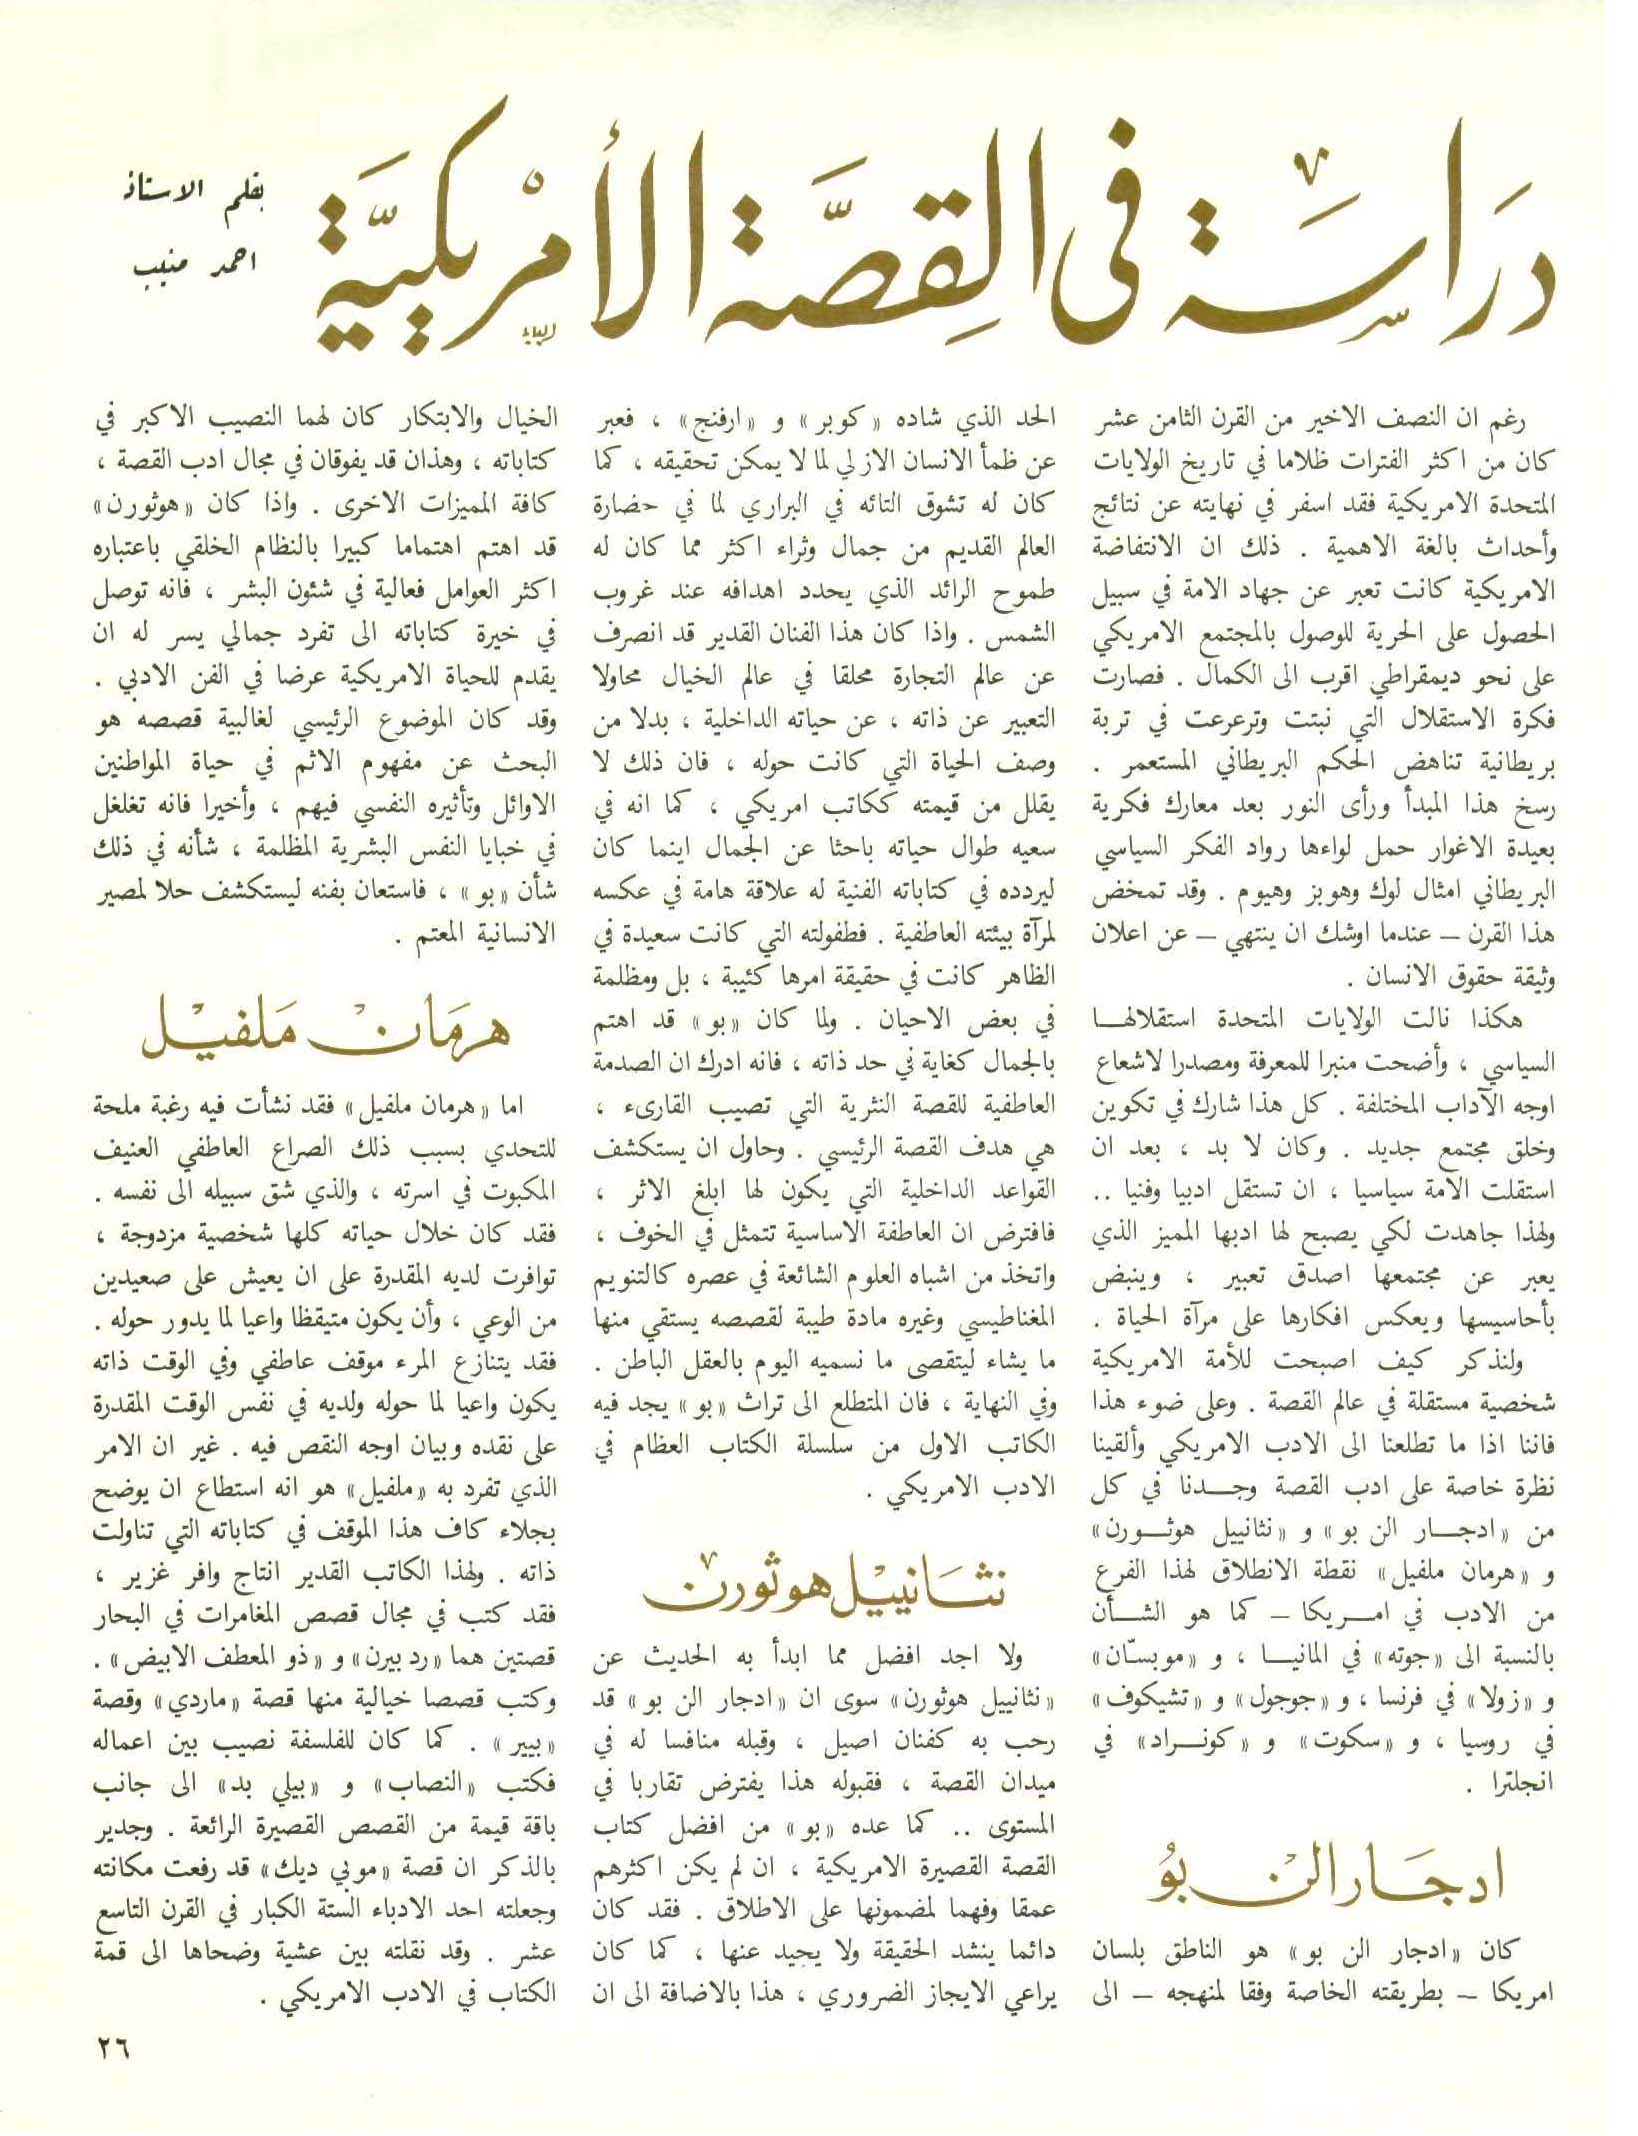 دراسة في القصة الأمريكية
بقلم الاستاذ
احمد منيب
رغم ان النصف الاخير من القرن الثامن عشر
كان من اكثر الفترات ظلاما في تاريخ الولايات
المتحدة الامريكية فقد اسفر في نهايته عن نتائج
وأحداث بالغة الاهمية . ذلك ان الانتفاضة
الامريكية كانت تعبر عن جهاد الامة في سبيل
الحصول على الحرية للوصول بالمجتمع الامريكي
على نحو ديمقراطي اقرب الى الكمال . فصارت
فكرة الاستقلال التي نبتت وترعرعت في تربة
بريطانية تناهض الحكم البريطاني المستعمر .
رسخ هذا المبدأ ورأى النور بعد معارك فكرية
بعيدة الاغوار حمل لواءها رواد الفكر السياسي
البريطاني امثال لوك وهوبز وهيوم . وقد تمخض
هذا القرن – عندما اوشك ان ينتهي – عن اعلان
وثيقة حقوق الانسان .
هكذا نالت الولايات المتحدة استقلالهـا
السياسي ، وأضحت منبرا للمعرفة ومصدرا لاشعاع
اوجه الآداب المختلفة . كل هذا شارك في تكوين
وخلق مجتمع جديد . وكان لا بد ، بعد ان
استقلت الامة سياسيا ، ان تستقل ادبيا وفنيا ..
ولهذا جاهدت لكي يصبح لها ادبها المميز الذي
يعبر عن مجتمعها اصدق تعبير ، وينبض
بأحاسيسها ويعكس افكارها على مرآة الحياة .
ولنذكر كيف اصبحت للأمة الامريكية
شخصية مستقلة في عالم القصة . وعلى ضوء هذا
فاننا اذا ما تطلعنا الى الادب الامريكي وألقينا
نظرة خاصة على ادب القصة وجـدنا في كل
من «ادجـار الن بو» و «نثانييل هوثـورن»
و «هرمان ملفيل» نقطة الانطلاق لهذا الفرع
من الادب في امـريكا – كما هو الشـأن
بالنسبة الى «جوته» في المانيـا ، و «موبسّان»
و «زولا» في فرنسا ، و «جوجول» و «تشيكوف»
في روسيا ، و «سكوت» و «كونـراد» في
انجلترا .
ادجار الن بو
كان «ادجار الن بو» هو الناطق بلسان
امريكا – بطريقته الخاصة وفقا لمنهجه – الى
الحد الذي شاده «كوبر» و «ارفنج» ، فعبر
عن ظمأ الانسان الازلي لما لا يمكن تحقيقه ، كما
كان له تشوق التائه في البراري لما في حضارة
العالم القديم من جمال وثراء اكثر مما كان له
طموح الرائد الذي يحدد اهدافه عند غروب
الشمس . واذا كان هذا الفنان القدير قد انصرف
عن عالم التجارة محلقا في عالم الخيال محاولا
التعبير عن ذاته ، عن حياته الداخلية ، بدلا من
وصف الحياة التي كانت حوله ، فان ذلك لا
يقلل من قيمته ككاتب امريكي ، كما انه في
سعيه طوال حياته باحثا عن الجمال اينما كان
ليردده في كتاباته الفنية له علاقة هامة في عكسه
لمرآة بيئته العاطفية . فطفولته التي كانت سعيدة في
الظاهر كانت في حقيقة امرها كئيبة ، بل ومظلمة
في بعض الاحيان . ولما كان «بو» قد اهتم
بالجمال كغاية في حد ذاته ، فانه ادرك ان الصدمة
العاطفية للقصة النثرية التي تصيب القارىء ،
هي هدف القصة الرئيسي . وحاول ان يستكشف
القواعد الداخلية التي يكون لها ابلغ الاثر ،
فافترض ان العاطفة الاساسية تتمثل في الخوف ،
واتخذ من اشباه العلوم الشائعة في عصره كالتنويم
المغناطيسي وغيره مادة طيبة لقصصه يستقي منها
ما يشاء ليتقصى ما نسميه اليوم بالعقل الباطن .
وفي النهاية ، فان المتطلع الى تراث «بو» يجد فيه
الكاتب الاول من سلسلة الكتاب العظام في
الادب الامريكي .
نثانييل هوثورن
ولا اجد افضل مما ابدأ به الحديث عن
«نثانييل هوثورن» سوى ان «ادجار الن بو» قد
رحب به كفنان اصيل ، وقبله منافسا له في
ميدان القصة ، فقبوله هذا يفترض تقاربا في
المستوى .. كما عده «بو» من افضل كتاب
القصة القصيرة الامريكية ، ان لم يكن اكثرهم
عمقا وفهما لمضمونها على الاطلاق . فقد كان
دائما ينشد الحقيقة ولا يحيد عنها ، كما كان
يراعي الايجاز الضروري ، هذا بالاضافة الى ان
الخيال والابتكار كان لهما النصيب الاكبر في
كتاباته ، وهذان قد يفوقان في مجال ادب القصة ،
كافة المميزات الاخرى . واذا كان «هوثورن»
قد اهتم اهتماما كبيرا بالنظام الخلقي باعتباره
اكثر العوامل فعالية في شئون البشر ، فانه توصل
في خيرة كتاباته الى تفرد جمالي يسر له ان
يقدم للحياة الامريكية عرضا في الفن الادبي .
وقد كان الموضوع الرئيسي لغالبية قصصه هو
البحث عن مفهوم الاثم في حياة المواطنين
الاوائل وتأثيره النفسي فيهم ، وأخيرا فانه تغلغل
في خبايا النفس البشرية المظلمة ، شأنه في ذلك
شأن «بو» ، فاستعان بفنه ليستكشف حلا لمصير
الانسانية المعتم .
هرمان ملفيل
اما «هرمان ملفيل» فقد نشأت فيه رغبة ملحة
للتحدي بسبب ذلك الصراع العاطفي العنيف
المكبوت في اسرته ، والذي شق سبيله الى نفسه .
فقد كان خلال حياته كلها شخصية مزدوجة ،
توافرت لديه المقدرة على ان يعيش على صعيدين
من الوعي ، وأن يكون متيقظا واعيا لما يدور حوله .
فقد يتنازع المرء موقف عاطفي وفي الوقت ذاته
يكون واعيا لما حوله ولديه في نفس الوقت المقدرة
على نقده وبيان اوجه النقص فيه . غير ان الامر
الذي تفرد به «ملفيل» هو انه استطاع ان يوضح
بجلاء كاف هذا الموقف في كتاباته التي تناولت
ذاته . ولهذا الكاتب القدير انتاج وافر غزير ،
فقد كتب في مجال قصص المغامرات في البحار
قصتين هما «رد بيرن» و «ذو المعطف الابيض» .
وكتب قصصا خيالية منها قصة «ماردي» وقصة
«بيير» . كما كان للفلسفة نصيب بين اعماله
فكتب «النصاب» و «بيلي بد» الى جانب
باقة قيمة من القصص القصيرة الرائعة . وجدير
بالذكر ان قصة «موبي ديك» قد رفعت مكانته
وجعلته احد الادباء الستة الكبار في القرن التاسع
عشر . وقد نقلته بين عشية وضحاها الى قمة
الكتاب في الادب الامريكي .
٢٦